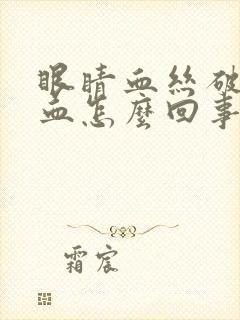 眼睛血絲破
血怎麼回事
霜宸